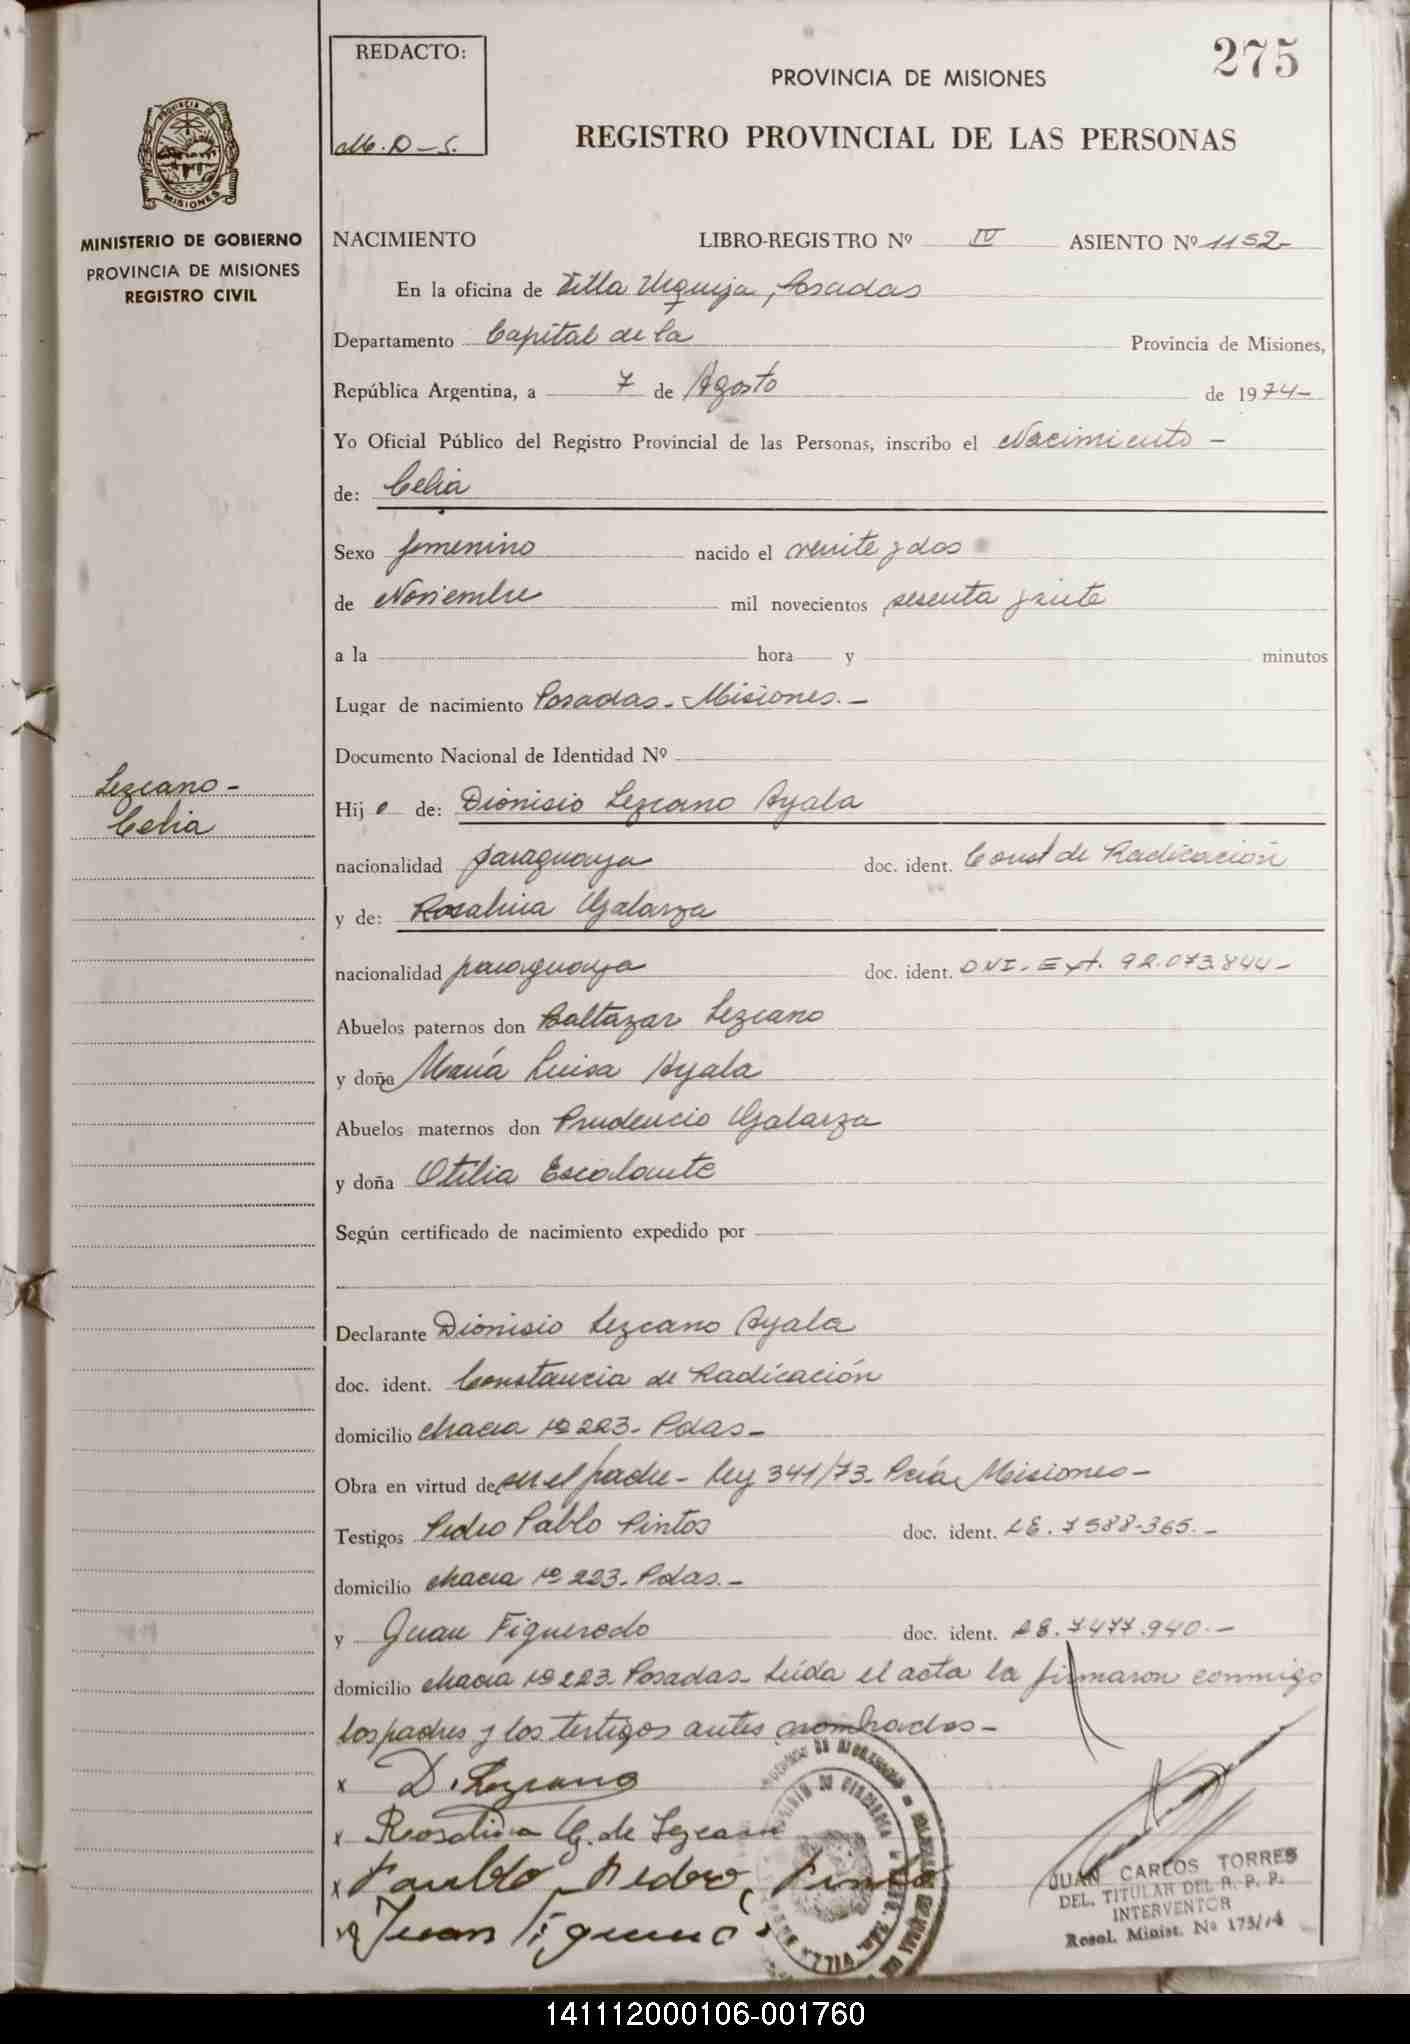 REDACTO:
M. D-S.
275
PROVINCIA DE MISIONES
REGISTRO PROVINCIAL DE LAS PERSONAS
PROVINCIA DE
MISIONES
MINISTERIO DE GOBIERNO
PROVINCIA DE MISIONES
REGISTRO CIVIL
NACIMIENTO LIBRO-REGISTRO Nº IV ASIENTO Nº 1152-
En la oficina de Villa Urquiza, Posadas
Departamento Capital de la Provincia de Misiones,
República Argentina, a 7 de Agosto de 1974-
Yo Oficial Público del Registro Provincial de las Personas, inscribo el Nacimiento -
de: Celia
Sexo femenino nacido el veinte y dos
de Noviembre mil novecientos sesenta y siete
a la hora y minutos
Lugar de nacimiento Posadas - Misiones. -
Documento Nacional de Identidad Nº
Lezcano -
Celia
Hij a de: Dionisio Lezcano Ayala
nacionalidad paraguaya doc. ident. Const de Radicación
y de: Rosalina Galarza
nacionalidad paraguaya doc. ident. DNI. Ext. 92.073.844-
Abuelos paternos don Baltazar Lezcano
y doña María Luisa Ayala
Abuelos maternos don Prudencio Galarza
y doña Otilia Escalante
Según certificado de nacimiento expedido por
Declarante Dionisio Lezcano Ayala
doc. ident. Constancia de Radicación
domicilio chacra Nº 223- Pdas-
Obra en virtud de ser el padre - Ley 341/73- Pcia Misiones-
Testigos Pedro Pablo Pintos doc. ident. LE. 7588-365. -
domicilio chacra Nº 223- Pdas. -
y Juan Figueredo doc. ident. LE. 7477.940. -
domicilio chacra Nº 223- Posadas- Leída el acta la firmaron conmigo
los padres y los testigos antes nombrados-
x D. Lezcano
x Rosalina G. de Lezcano
x Paublo Pedro, Pinto
x Juan Figuere
JUAN CARLOS TORRES
DEL. TITULAR DEL R. P. P.
INTERVENTOR
Resol. Minist. Nº 173/74
141112000106-001760